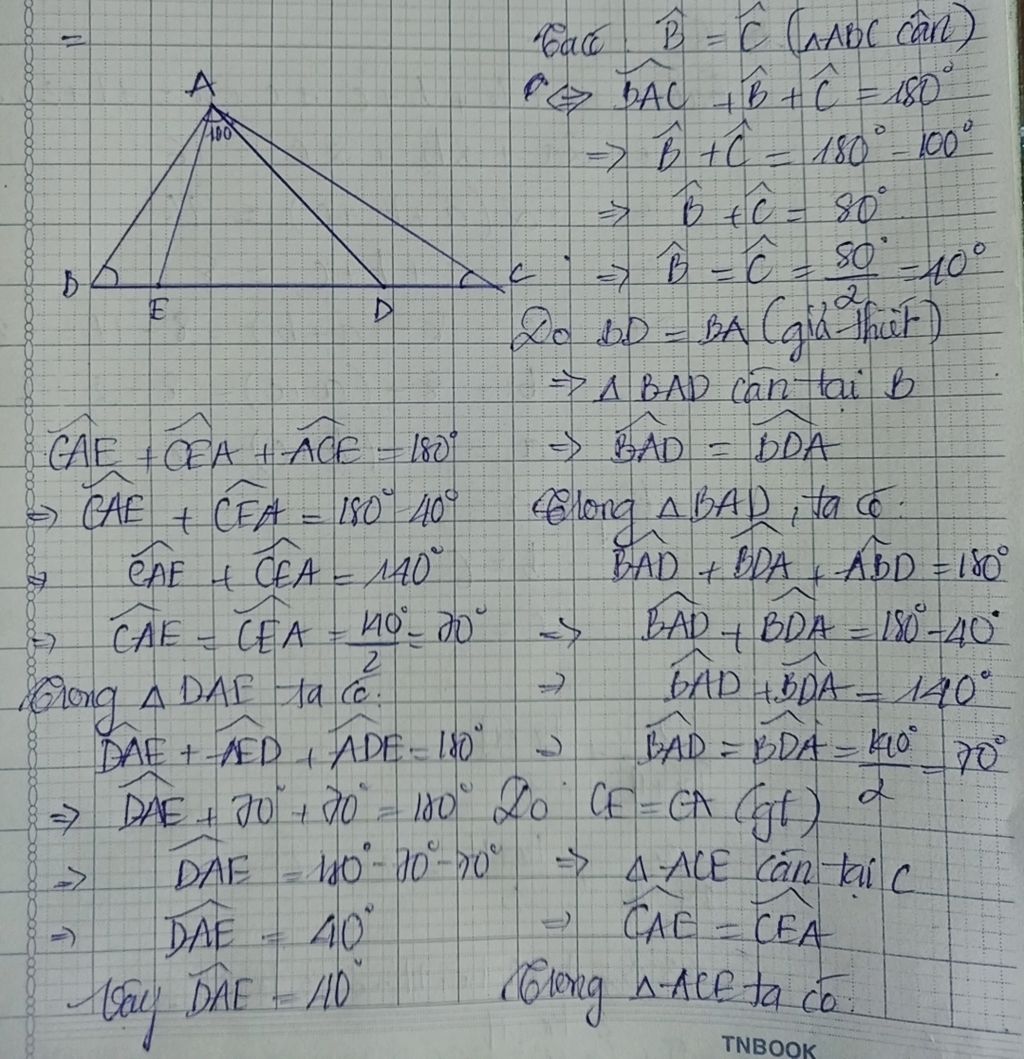 =
A
100
B
E
D
C
Ta có: B̂ = Ĉ (△ABC cân)
⇔ \widehat{BAC} + B̂ + Ĉ = 180°
⇒ B̂ + Ĉ = 180° - 100°
⇒ B̂ + Ĉ = 80°
⇒ B̂ = Ĉ = 80°/2 = 40°
Do BD = BA (giả thiết)
⇒ △ BAD cân tại B
⇒ \widehat{BAD} = \widehat{BDA}
Trong △ BAD, ta có:
\widehat{BAD} + \widehat{BDA} + \widehat{ABD} = 180°
⇒ \widehat{BAD} + \widehat{BDA} = 180° - 40°
⇒ \widehat{BAD} + \widehat{BDA} = 140°
⇒ \widehat{BAD} = \widehat{BDA} = 140°/2 = 70°
Do CE = CA (gt)
⇒ △ ACE cân tại C
⇒ \widehat{CAE} = \widehat{CEA}
Trong △ ACE ta có:
\widehat{CAE} + \widehat{CEA} + \widehat{ACE} = 180°
⇒ \widehat{CAE} + \widehat{CEA} = 180° - 40°
⇒ \widehat{CAE} + \widehat{CEA} = 140°
⇒ \widehat{CAE} = \widehat{CEA} = 140°/2 = 70°
Trong △ DAE ta có:
\widehat{DAE} + \widehat{AED} + \widehat{ADE} = 180°
⇒ \widehat{DAE} + 70° + 70° = 180°
⇒ \widehat{DAE} = 180° - 70° - 70°
⇒ \widehat{DAE} = 40°
Vậy \widehat{DAE} = 40°
TNBOOK